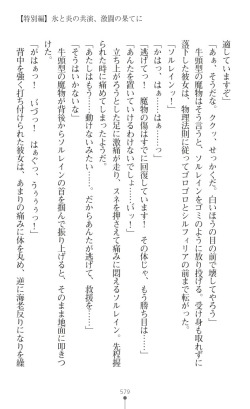 【特別編】氷と炎の共演、激闘の果てに
適していますぞ」
「あぁ、そうだな、ククッ、せっかくだ。白いほうの目の前で壊してやろう」
牛頭型の魔物はそう言うと、ソルレインをゴミのように放り投げる。受け身も取れずに
落下した彼女は、物理法則に従ってゴロゴロとシルフィリアの前まで転がった。
「ソルレインっ！」
「かはっ、はぁ……はぁ……っ」
「逃げてっ！　魔物の傷はすでに回復しています！　その体じゃ、もう勝ち目は――」
「あんたを置いていけるわけないでしょ……っ！　ぐっ!?」
立ち上がろうとした足に激痛が走り、スネを押さえて痛みに悶えるソルレイン。先程握
られた時に痛めてしまったようだ。
「あたしはもう……動けないみたい……。だからあんただけ逃げて、救援を――」
「そうはいくか！」
牛頭型の魔物が背後からソルレインの首を掴んで振り上げると、そのまま地面に叩きつ
ける。
「がはぁっ！　いづっ！　はぁぐっ、うぅぅぅっ！」
背中を強く打ち付けられた彼女は、あまりの痛みに体を丸め、逆に海老反りになりを繰
579